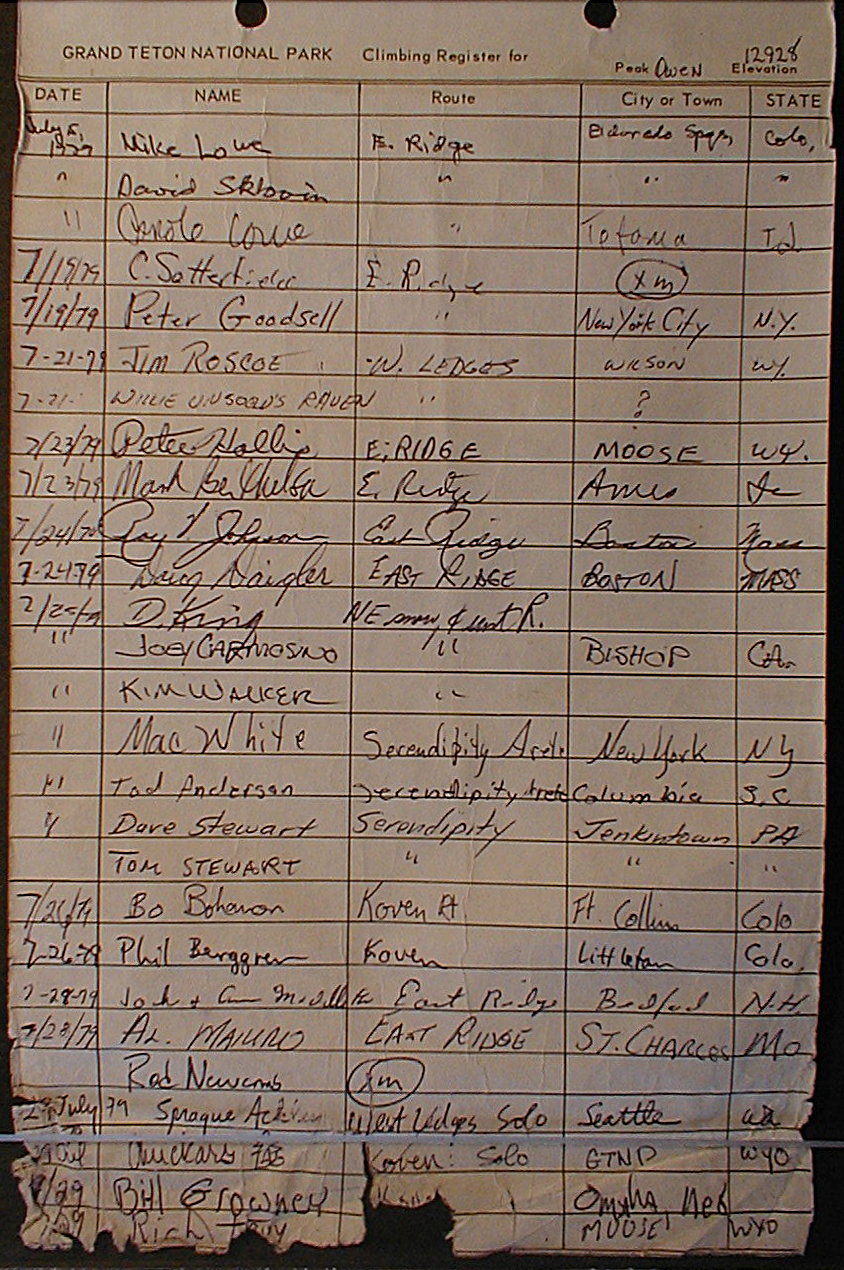 GRAND TETON NATIONAL PARK Climbing Register for Peak Owen 12928 Elevation
DATE NAME Route City or Town STATE
July 5, 1979 Mike Lowe E. Ridge Eldorado Spgs Colo,
" David " " "
" Lowe " Id
7/19/79 C. Satterfield E. Ridge
7/19/79 Peter Goodsell " New York City N.Y.
7-21-79 JIM ROSCOE W. LEDGES WILSON WY.
7-21- WILLIE UNSOELD'S RAVEN " ?
7/23/79 Peter Hollis E. RIDGE MOOSE WY.
7/23/79 Mark E. Ridge Ames Ia
7/24/79 Ray Johnson East Ridge Boston Mass
7-24-79 Daigler EAST RIDGE BOSTON MASS
7/25/79 D. King NE snow R.
" JOEY CARMOSINO " BISHOP CA.
" KIM WALKER "
" Mac White Serendipity Arete New York NY
" Tod Anderson Serendipity Arete Columbia S.C
" Dave Stewart Serendipity Jenkintown PA
TOM STEWART " " "
7/26/79 Bo Bohanon Koven Rt Ft. Collins Colo
7-26-79 Phil Berggren Koven Littleton Colo.
7-28-79 East Ridge Bedford N.H.
7/28/79 AL. MAURO EAST RIDGE ST. CHARLES MO
Rod Newcomb
29 July 79 Sprague West Ledges Solo Seattle WA
Koven: Solo GTNP WYO
7/29 Bill Growney Omaha, Neb
7/29 Rich MOOSE WYO